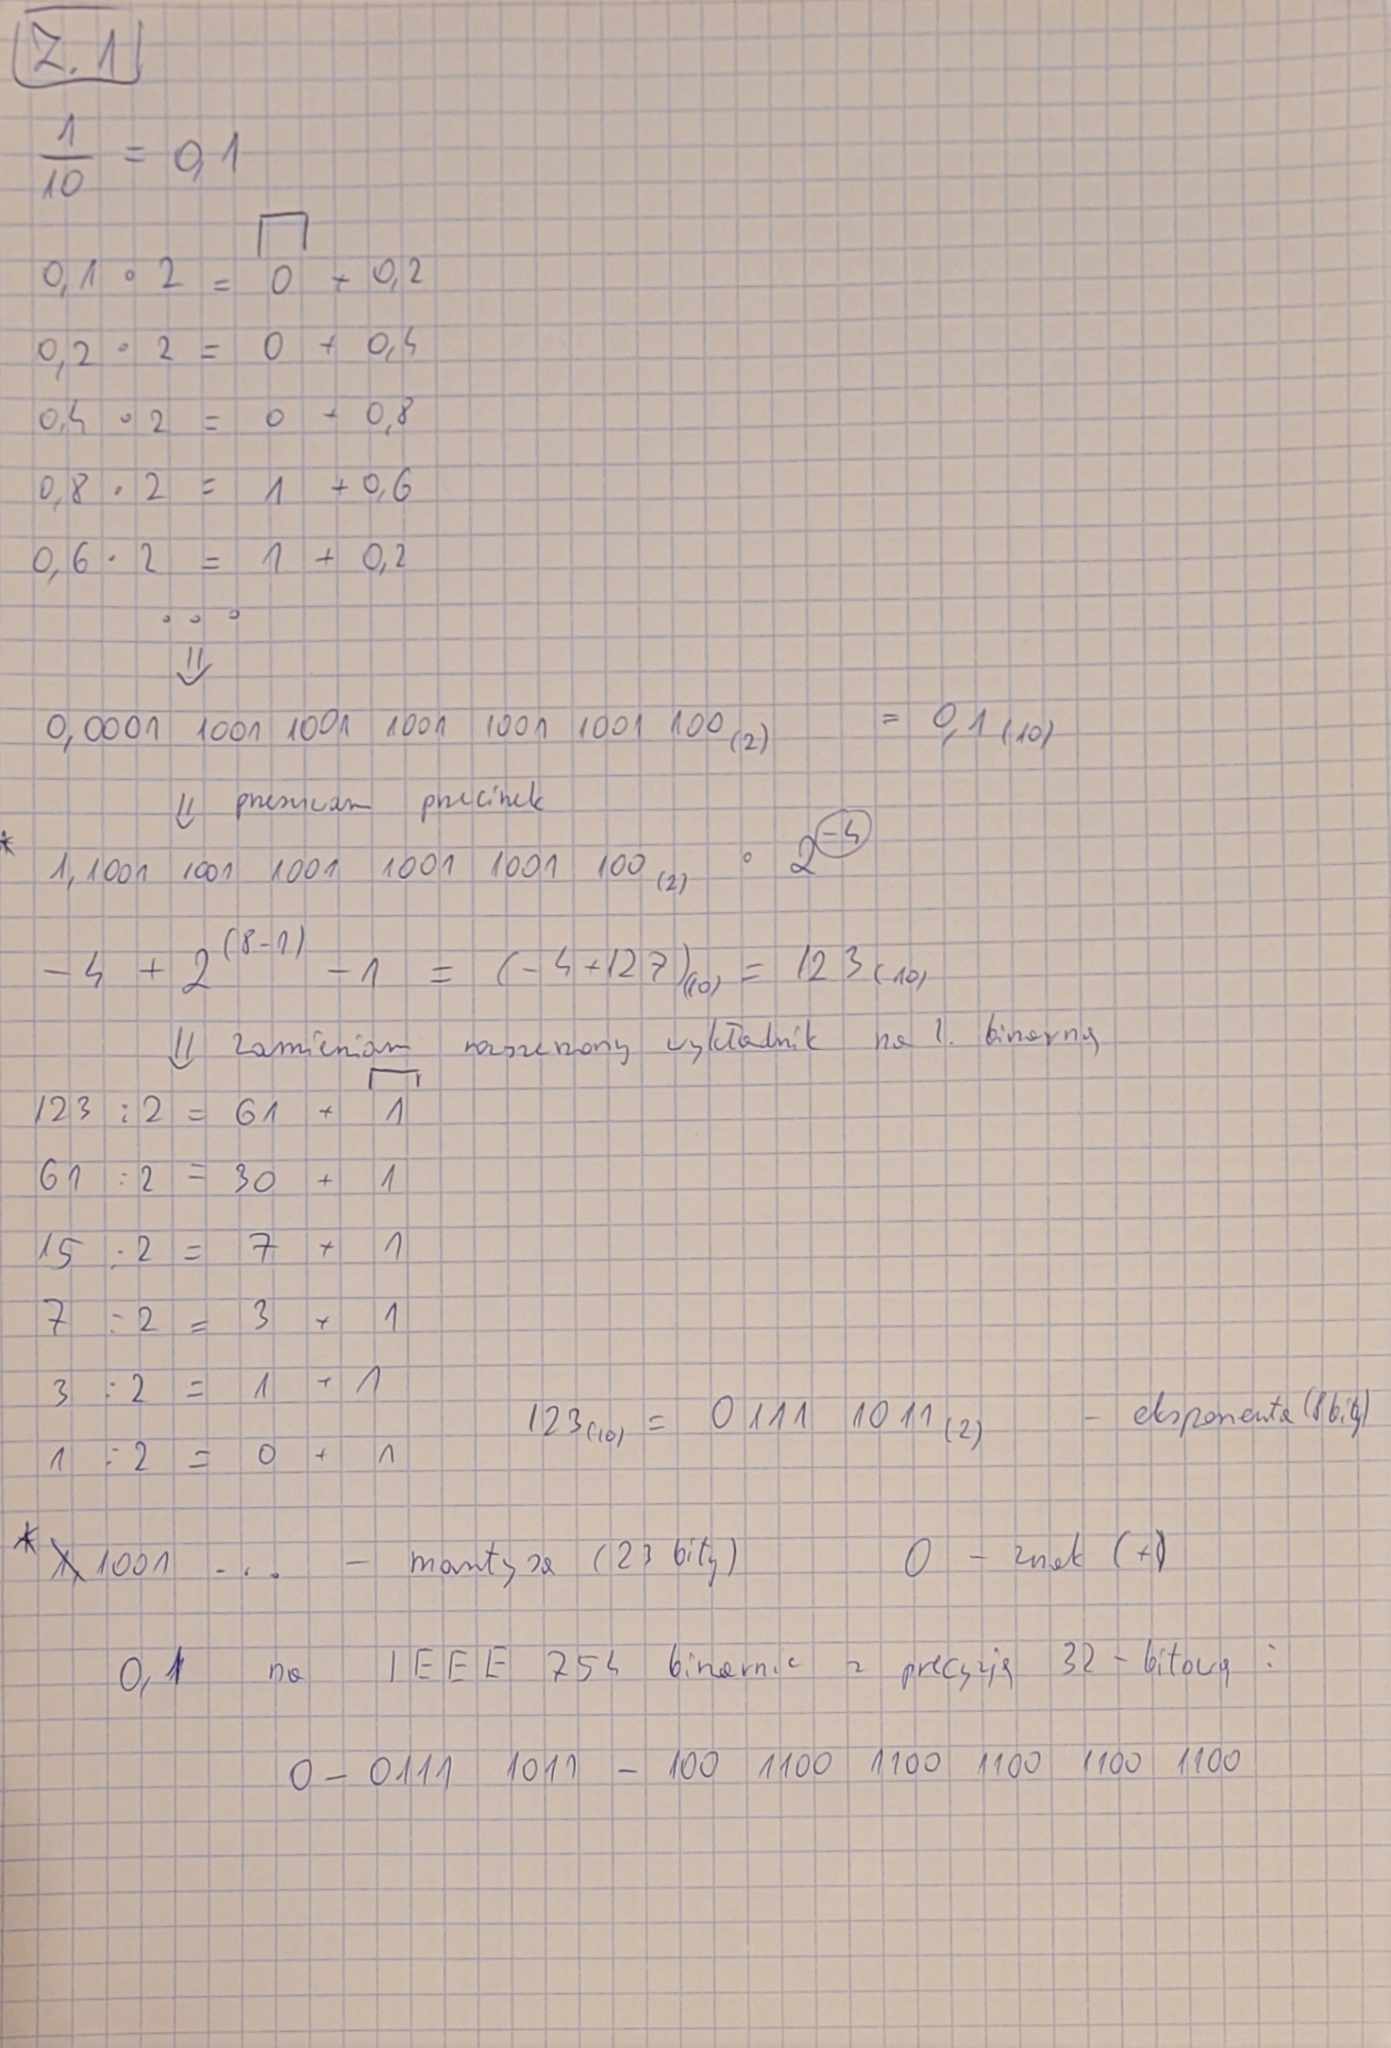 Z. 1
1/10 = 0,1
0,1 · 2 = 0 + 0,2
0,2 · 2 = 0 + 0,4
0,4 · 2 = 0 + 0,8
0,8 · 2 = 1 + 0,6
0,6 · 2 = 1 + 0,2
...
⇓
0,0001 1001 1001 1001 1001 1001 100(2) = 0,1(10)
⇓ przesuwam przecinek
* 1,1001 1001 1001 1001 1001 100(2) · 2^-4
-4 + 2^(8-1) - 1 = (-4+127)(10) = 123(10)
⇓ zamieniam rozszerzony wykładnik na l. binarną
123 : 2 = 61 + 1
61 : 2 = 30 + 1
15 : 2 = 7 + 1
7 : 2 = 3 + 1
3 : 2 = 1 + 1
123(10) = 0111 1011(2) - eksponenta (8 bity)
1 : 2 = 0 + 1
* 1, 1001 ... - mantysa (23 bity) 0 - znak (+)
0,1 na IEEE 754 binarnie z precyzją 32-bitową :
0 - 0111 1011 - 100 1100 1100 1100 1100 1100